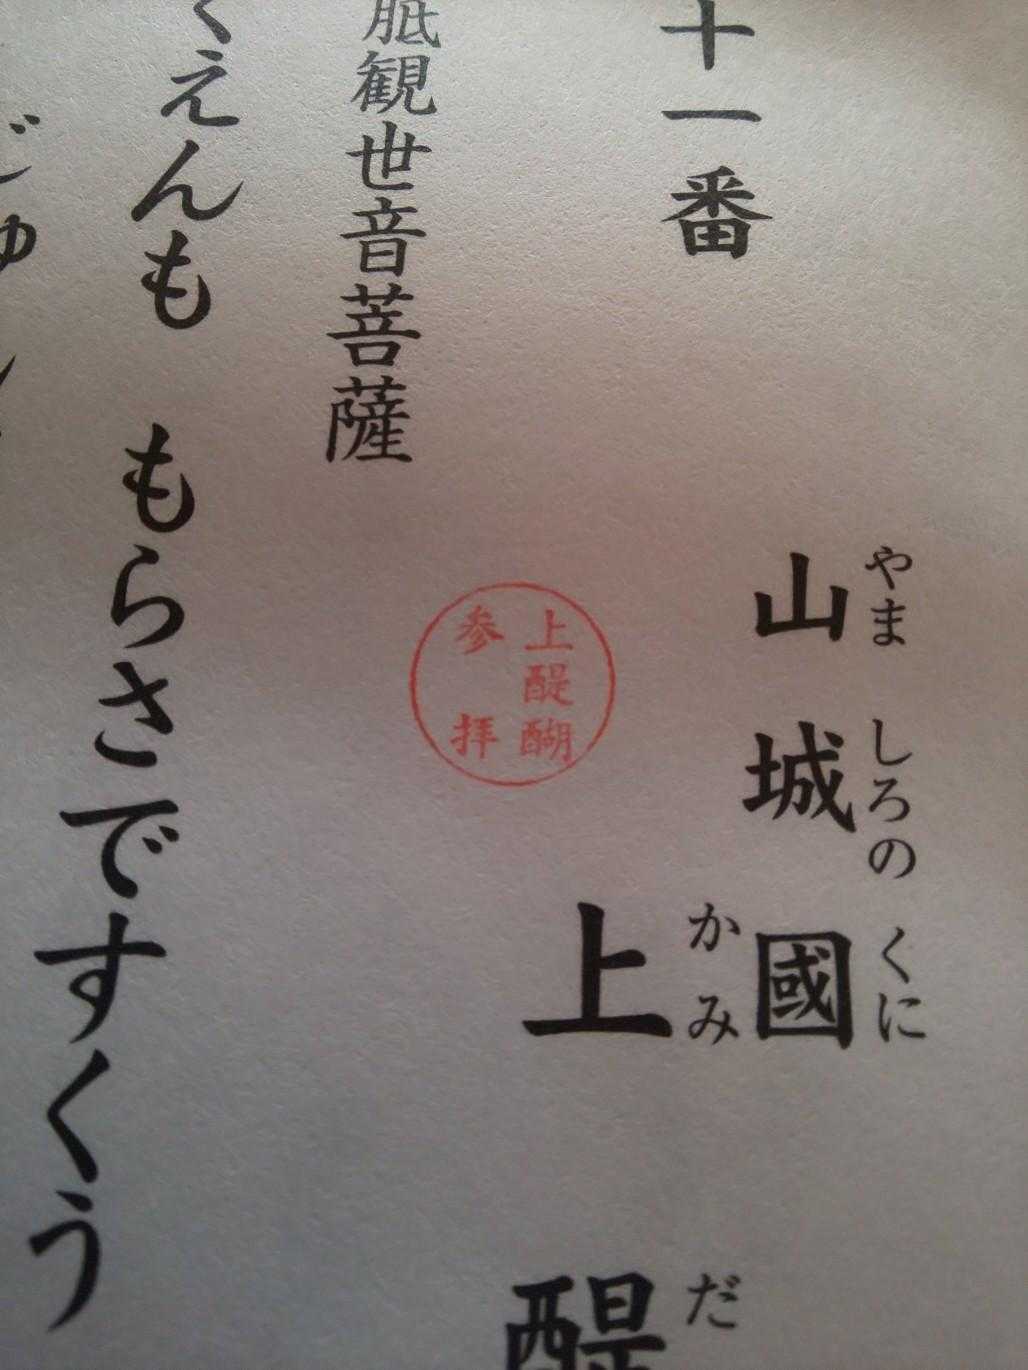 十一番
やましろのくに
山城國
かみだ
上醍
上醍醐
参拝
胝観世音菩薩
くえんも もらさですくう
じゅ